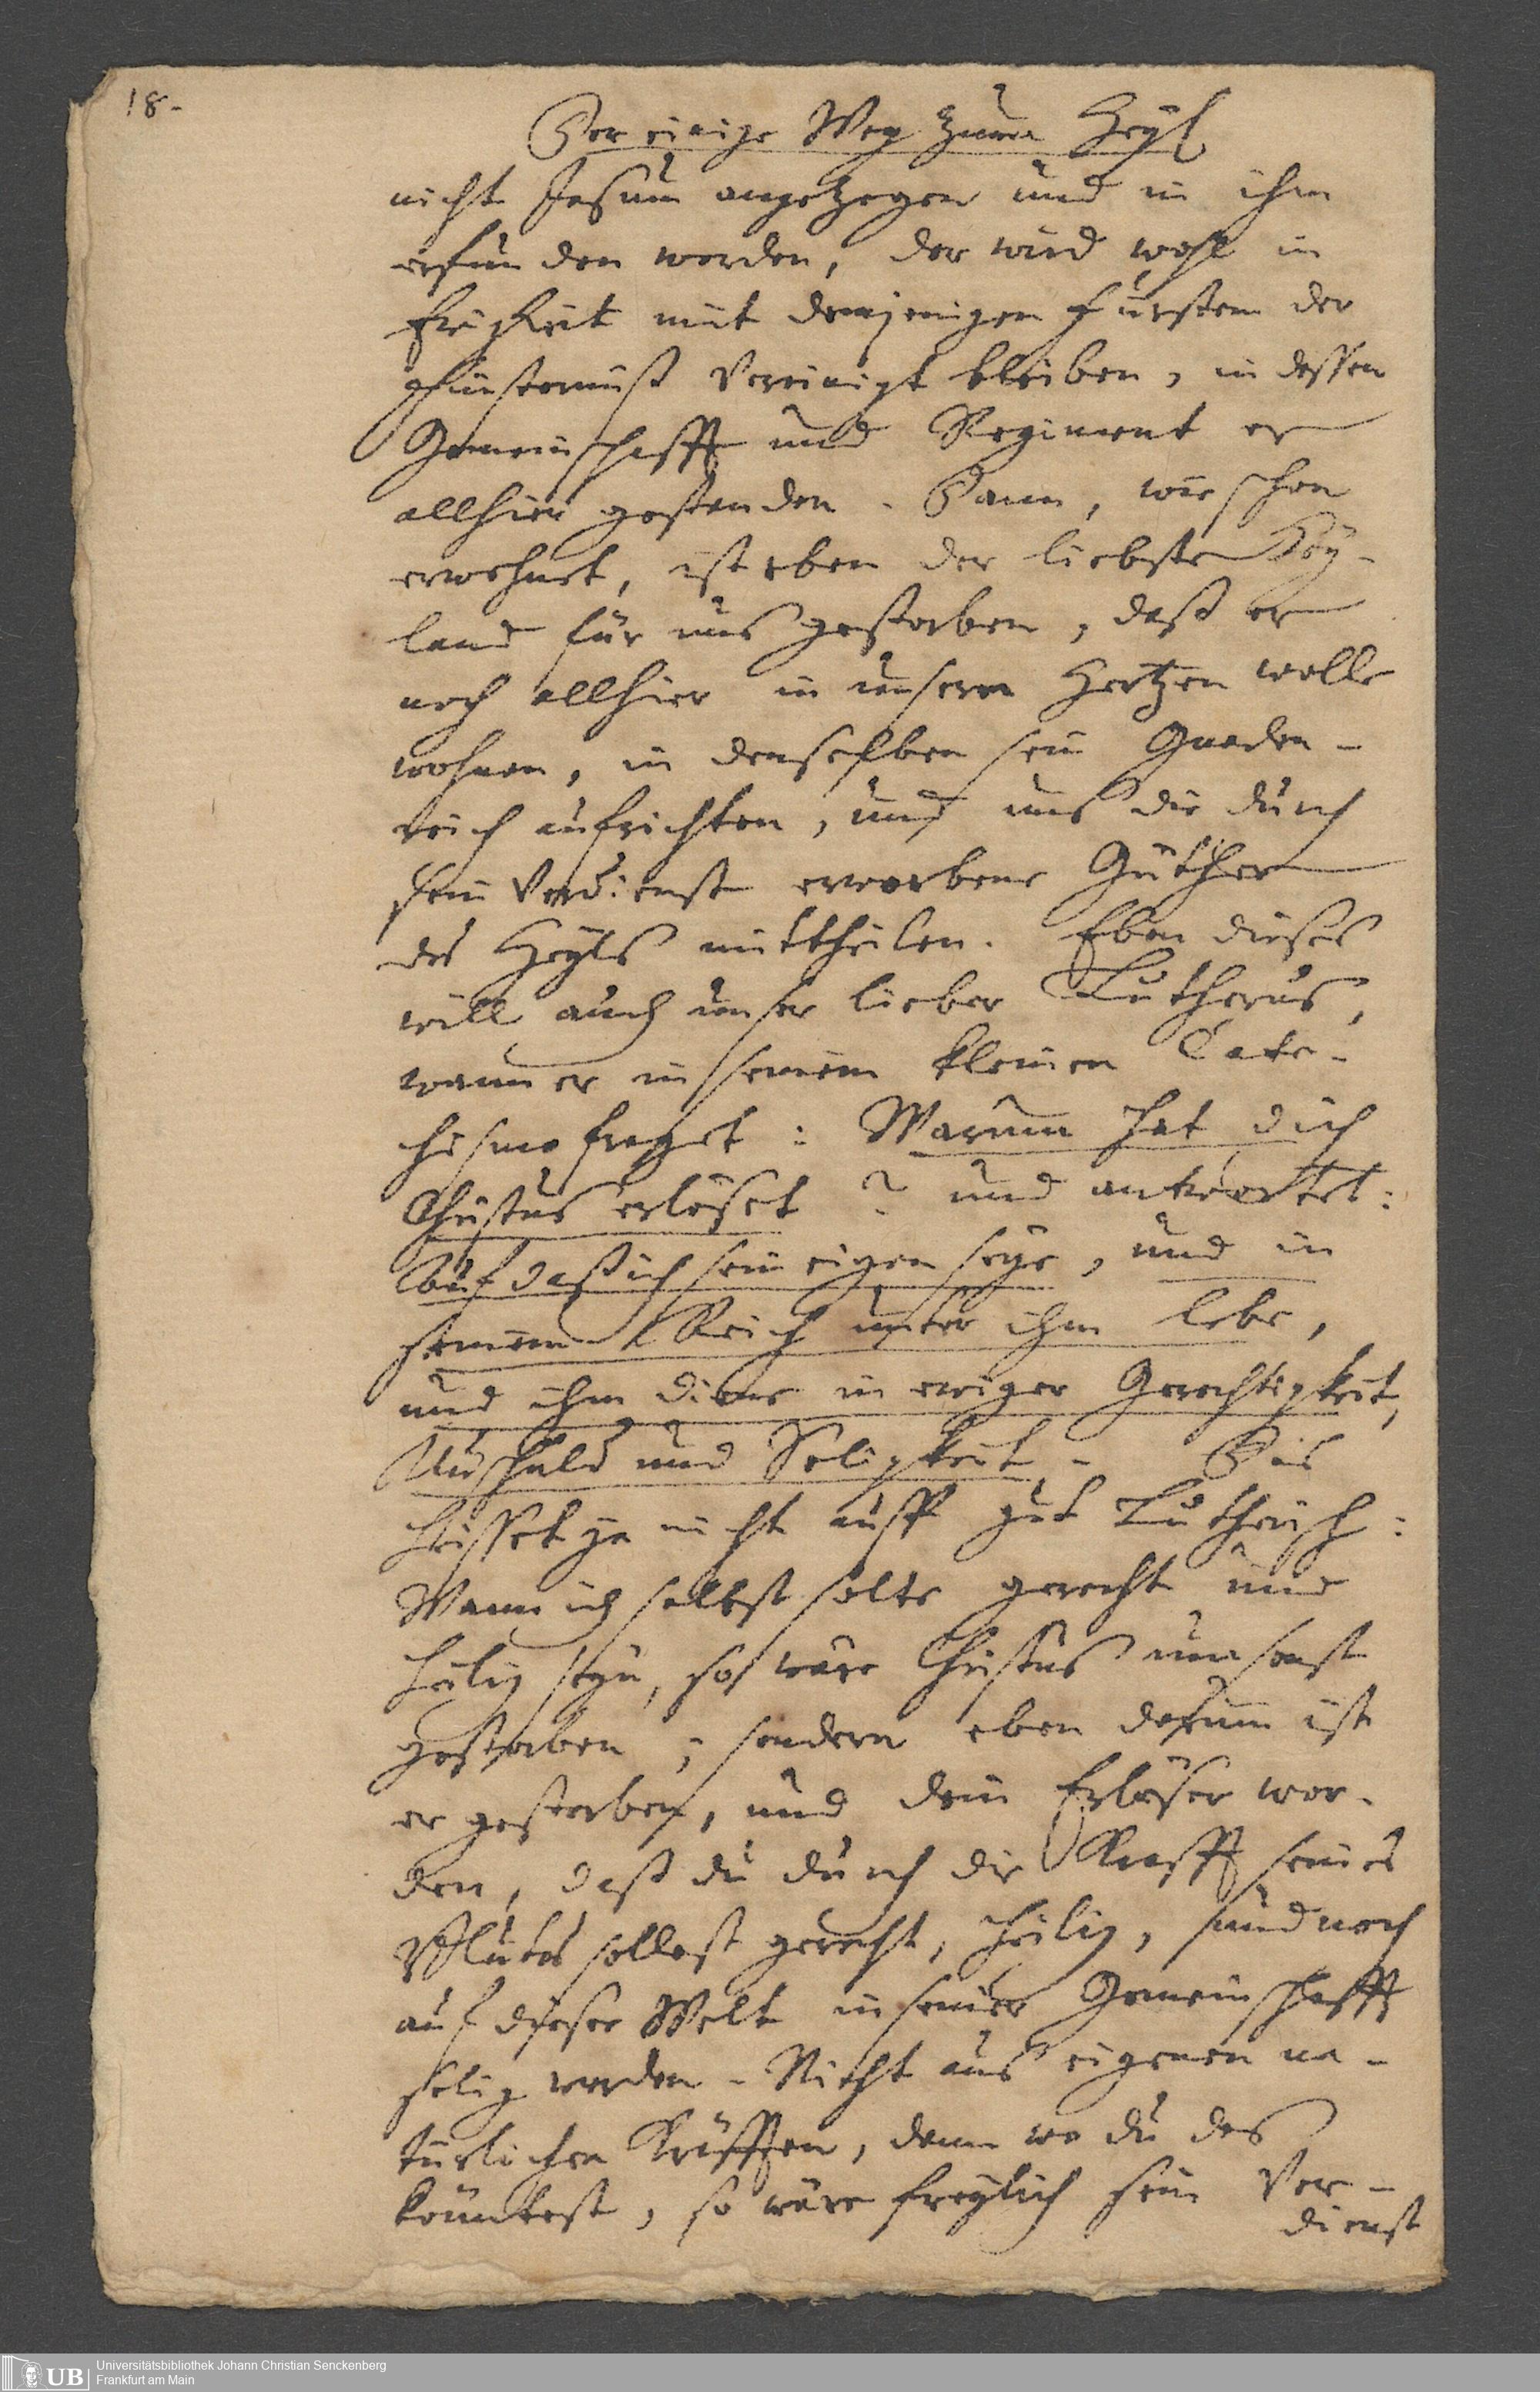 18.
Der einige Weg zum Heyl
nicht Jesum angetzogen und in ihm
erfunden worden, der wird wohl in
Ewigkeit mit demjenigen Fürsten der
Finsternuß Vereinigt bleiben, in dessen
Gemeinschafft und Regiment er
allhier gestanden. Dann, wie schon
erwehnt, ist eben der liebste Hey-
land für uns gestorben, daß er
noch allhier in unserm Hertzen wolle
wohnen, in denselben sein Gnaden-
reich aufrichten, und uns die durch
sein Verdienst erworbene Güther
des Heyls mittheilen. Eben dieses
will auch unser lieber Lutherus,
wann er in seinem kleinen Cate-
chismo fraget: Warum hat dich
Christus erlöset? und antwortet:
Auf daß ich sein eigen seye, und in
seinem Reich unter ihm lebe,
und ihm diene in ewiger Gerechtigkeit,
Unschuld und Seligkeit. Das
heisset ja nicht auff gut Lutherisch:
Wann ich selbst solte gerecht und
heilig seyn, so wäre Christus umsonst
gestorben; sondern eben darum ist
er gestorben, und dein Erlöser wor-
den, daß du durch die Krafft seines
Blutes sollest gerecht, heilig, und noch
auf dieser Welt in seiner Gemeinschafft
selig werden. Nicht aus eigenen na-
türlichen Kräfften, denn wo du das
könntest, so wäre freylich sein Ver-
dienst
UB
Universitätsbibliothek Johann Christian Senckenberg
Frankfurt am Main